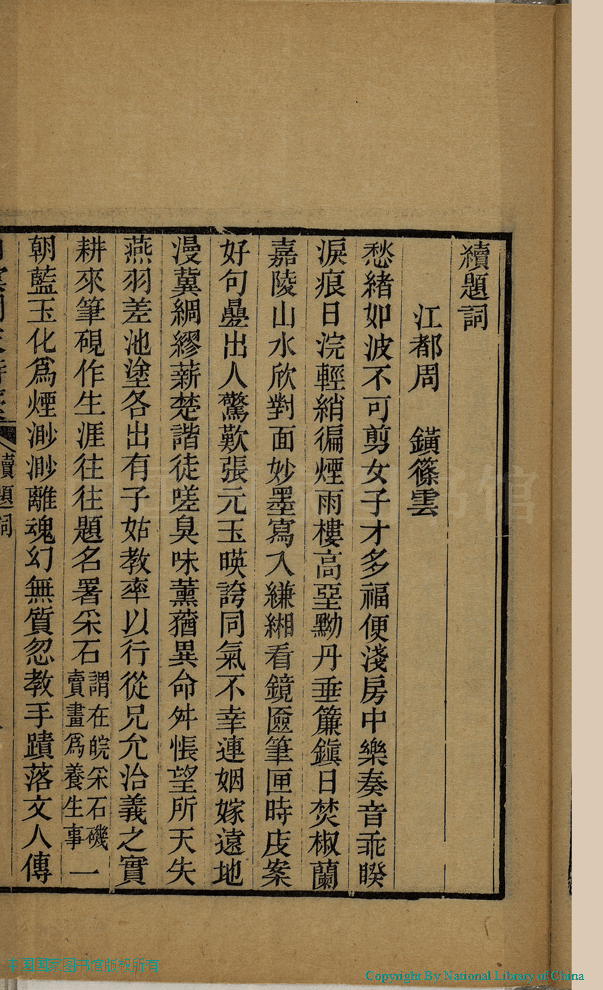 續題詞
江都周　鐄篠雲
愁緒如波不可剪女子才多福便淺房中樂奏音乖睽
淚痕日浣輕綃徧煙雨樓高堊黝丹垂簾鎮日焚椒蘭
嘉陵山水欣對面妙墨寫入縑緗看鏡匳筆匣時庋案
好句疊出人驚歎張元玉暎誇同氣不幸連姻嫁遠地
漫冀綢繆薪楚諧徒嗟臭味薰蕕異命舛悵望所天失
燕羽差池塗各出有子姑教率以行從兄允洽義之實
耕來筆硯作生涯往往題名署采石謂在皖采石磯賣畫爲養生事一
朝藍玉化爲煙渺渺離魂幻無質忽教手蹟落文人傳
續題詞
中国国家图书馆版权所有
Copyright By National Library of China